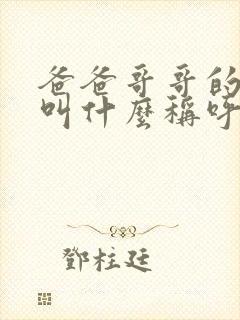 爸爸哥哥的
叫什麼稱呼
鄧柱廷